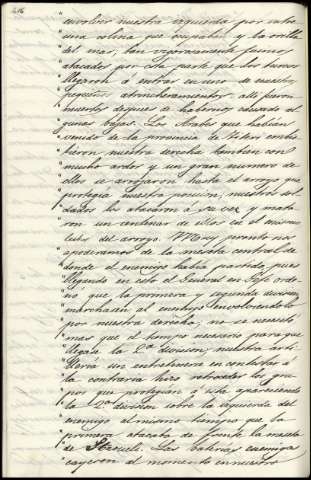 216
" envolver nuestra izquierda por entre
" una colina que ocupaba y la orilla
" del mar, tan vigorosamente fuimos
" atacados por esta parte que los turcos
" llegaron á entrar en uno de nuestros
" pequeños atrincheramientos allí fueron
" muertos despues de habernos causado al
" gunas bajas. Los Arabes que habian
" venido de la provincia de Titeri comba
" tieron nuestra derecha tambien con
" mucho ardor y un gran numero de
" ellos se arrojaron hasta el arroyo que
" protegia nuestra posicion, nuestros sol
" dados los atacaron á su vez y mata
" ron un centenar de ellos en el mismo
" lecho del arroyo. Muy pronto nos
" apoderamos de la meseta central de
" donde el enemigo habia partido, pues
" llegando en esto el General en Jefe orde
" nó que la primera y segunda division
" marchasen al enemigo envolviendole
" por nuestra derecha; no se necesitó
" mas que el tiempo necesario para que
" llegase la 2ª division; nuestra arti
" lleria sin entretenerse en contestar á
" la contraria hizo retroceder los gru
" pos que protegian á esta apareciendo
" la 2ª division sobre la izquierda del
" enemigo al mismo tiempo que la
" primera atacaba de frente la meseta
" de Staoueli. Las baterias enemigas
" cayeron al momento en nuestro